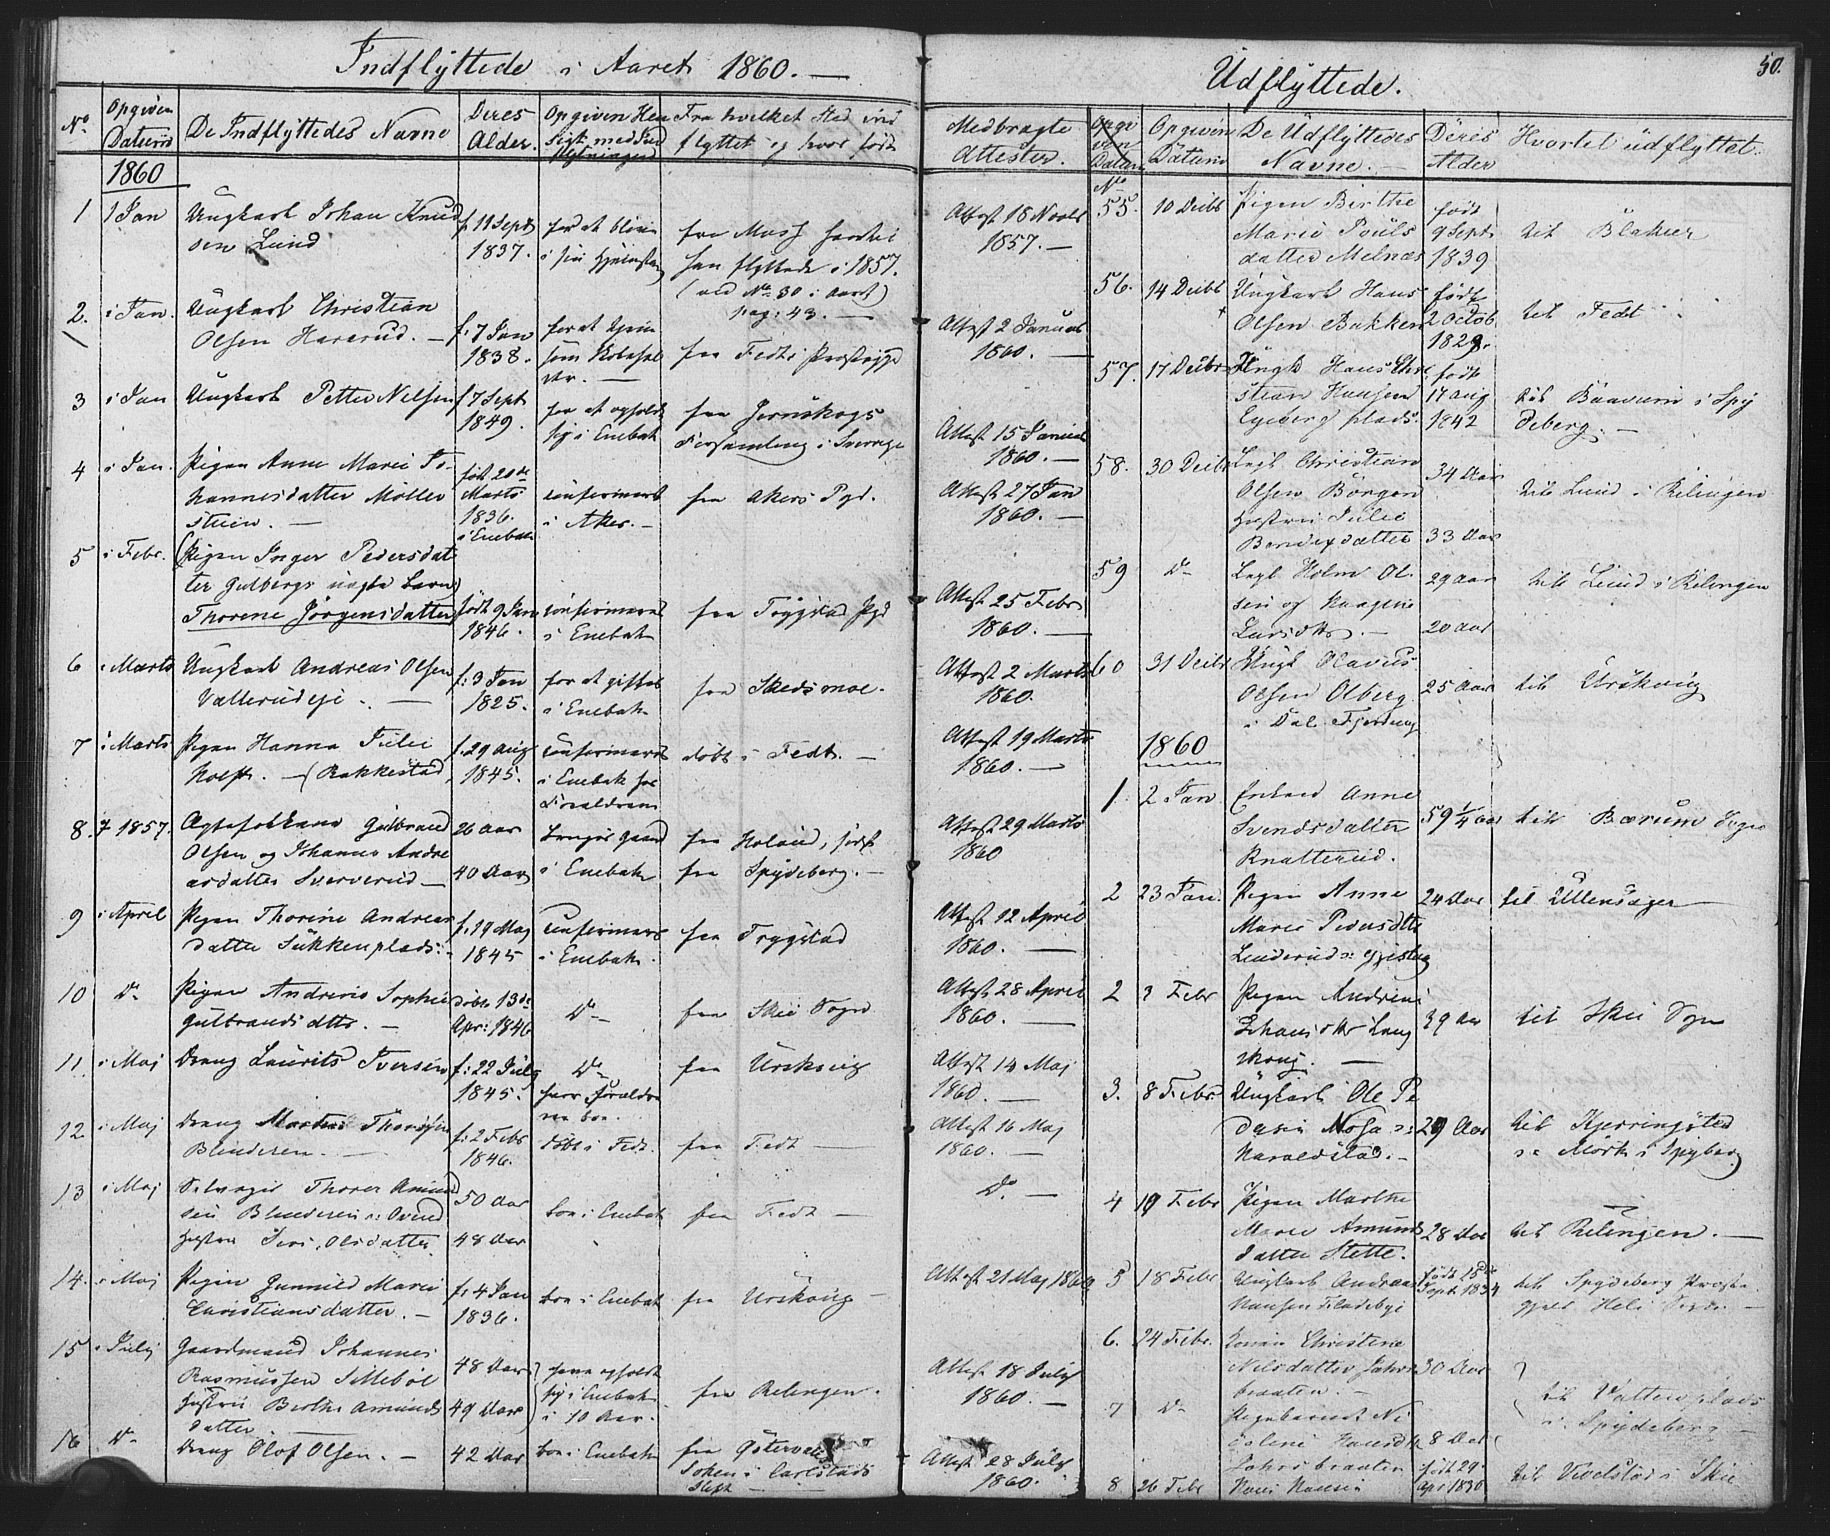 Indflÿttede i Aaret 1860. —
No
Opgiven Datum
De Indflÿttedes Navne
Deres Alder.
Opgiven Hensigt med Indflytningen
Fra hvilket Sted indflÿttet og hvor født
Medbragte Attester.
1860
1
1 Jan
Ungkarl Johan Knudsen Lund
f. 11 Sept 1837.
for at blive i sin Hjemstavn
fra Moss hvortil han flyttede i 1857.
(ved No 30 i Aaret) pag: 43. —
Attest 18 Novbr 1857. —
2.
i Jan.
Ungkarl Christian Olsen Harerud. —
f. 7 Jan 1838.
for at tjene som Skoleholder. —
fra Fedts Præstegjæ
Attest 2 Januar 1860. —
3
i Jan
Ungkarl Petter Nilsen
f 7 Sept 1849.
for at opholde sig i Enebak
fra Jernskogs Forsamling i Sverrige
Attest 15 Januar 1860. —
4
i Jan.
Pigen Anne Marie Johannesdatter Möllerstuen. —
født 20de Marts 1836. i Enebak
confirmeret i Aker. —
fra Akers Pgd.
Attest 27 Jan 1860. —
5
i Febr.
(Pigen Inger Pedersdatter Gulbergs uægte Barn)
Thorene Jörgensdatter
født 9 Jan 1846.
confirmeres i Enebak
fra Trÿgstad Pgd
Attest 25 Febr 1860. —
6
i Marts
Ungkarl Andreas Olsen Vallerudeje. —
f: 3 Jan 1825.
for at giftes i Enebak
fra Skedsmoe.
Attest 2 Marts 1860.
7
i Marts
Pigen Hanna Julie Holst. — (Rakkestad
f. 29 Aug 1845.
confirmeres i Enebak hos Forældrene
døbt i Fedt. —
Attest 19 Marts 1860. —
8.
7 1857.
Ægtefolkene Gulbrand Olsen og Johanne Andreasdatter Sververud —
26 Aar
40 Aar
i Enebak
fra Holand, født
fra Spÿdeberg. —
Attest 29 Marts 1860
9
i April
Pigen Thorine Andreasdatter Sukkenplads: —
f. 19 Maj 1845
confirmeres i Enebak
fra Trygstad
Attest 12 April 1860. —
10
Do
Pigen Andrine Sophie Gulbrandsdttr. —
døbt 13de Apr: 1846
Do —
fra Skie Sogn
Attest 28 April 1860. —
11.
i Maj
Dreng Laurits Iversen
f: 22 Julÿ 1845.
Do hvor Forældrene boe.
fra Urskoug
Attest 14 Maj 1860. —
12.
i Maj
Dreng Martin Thoresen Blenderen. —
f: 2 Febr 1846.
døbt i Fedt.
fra Fedt —
Attest 16 Maj 1860. —
13
i Maj
Selveier Thorer Amundsen Blenderen
Hustru Siri Olsdatter
50 Aar
48 Aar
boe i Enebak
fra Fedt —
Do —
14.
i Maj
Pigen Gunnild Marie Christiansdatter. —
f. 4 Jan 1836.
boe i Enebak
fra Urskoug —
Attest 21 Maj 1860
15
i Julÿ
Gaardmand Johannes Rasmussen Sillebøl
Hustru Berthe Amundsdatter. —
48 Aar
49 Aar
have opholdt sig i Enebak i 10 Aar.
fra Relingen.
Attest 18 Julÿ 1860. —
16
Do
Dreng Olof Olsen. —
42 Aar
boe i Enebak
fra Östervalls Soken i Carlstads Stift
Attest 28 Julÿ 1860.
Udflÿttede.
50.
Opgiven Datum
No
Opgiven Datum
De Udflÿttedes Navne. —
Deres Alder
Hvortil udflÿttet.
55.
10 Decbr
Pigen Birthe Marie Poulsdatter Melnæs
født 9 Sept 1839
til Blaker
56.
14 Decbr
Ungkarl Hans Olsen Bakken
født 2 Octob 1829.
til Fedt
57.
17 Decbr
Ungk Hans Christian Hansen Eyebergs plads.
født 17 Aug 1842
til Baavum i Spydeberg. —
58.
30 Decbr
Legl Christian Olsen Börgen
Hustru Julie Bendixdatter
34 Aar
33 Aar
til Lund i Relingen
59
Do
Legl Holm Olsen og Kaagene Larsdttr. —
29 Aar
20 Aar
til Lund i Relingen
60
31 Decbr
Ungk Olavus Olsen Olberg i Dal Fjerding
25 Aar
til Urskoug
1860
1.
2 Jan
Enkene Anne Svendsdatter Knatterud.
59 1/4 Aar
til Bærum Sogn
2
23 Jan.
Pigen Anne Marie Pedersdttr Linderud
24 Aar
til Ullensager —
2
3 Febr
Pigen Andrine Johansdttr Langskoug. —
39 Aar
til Skie Sogn
3.
8 Febr
Ungkarl Ole Pedersen Mosa Haraldstad. —
29 Aar
til Kjerringsted Mörk i Spydberg
4
19 Febr
Pigen Marthe Marie Amundsdatter Stette.
28 Aar
til Relingen. —
5
18 Febr
Ungkarl Andreas Hansen Fladebye
født 15de Sept 1834
til Spydeberg Præstegjeld Heli Sogn —
6.
24 Febr.
Konen Christine Nilsdatter Jahrsbraaten. —
30 Aar
til Vattensplads i Spydeberg —
7
Do
Pigebarnet Nicoline Hansdtr Jahrsbraaten
8 Aar
8
26 Febr
født 29 Apr 1830
til Vevelstad i Skie